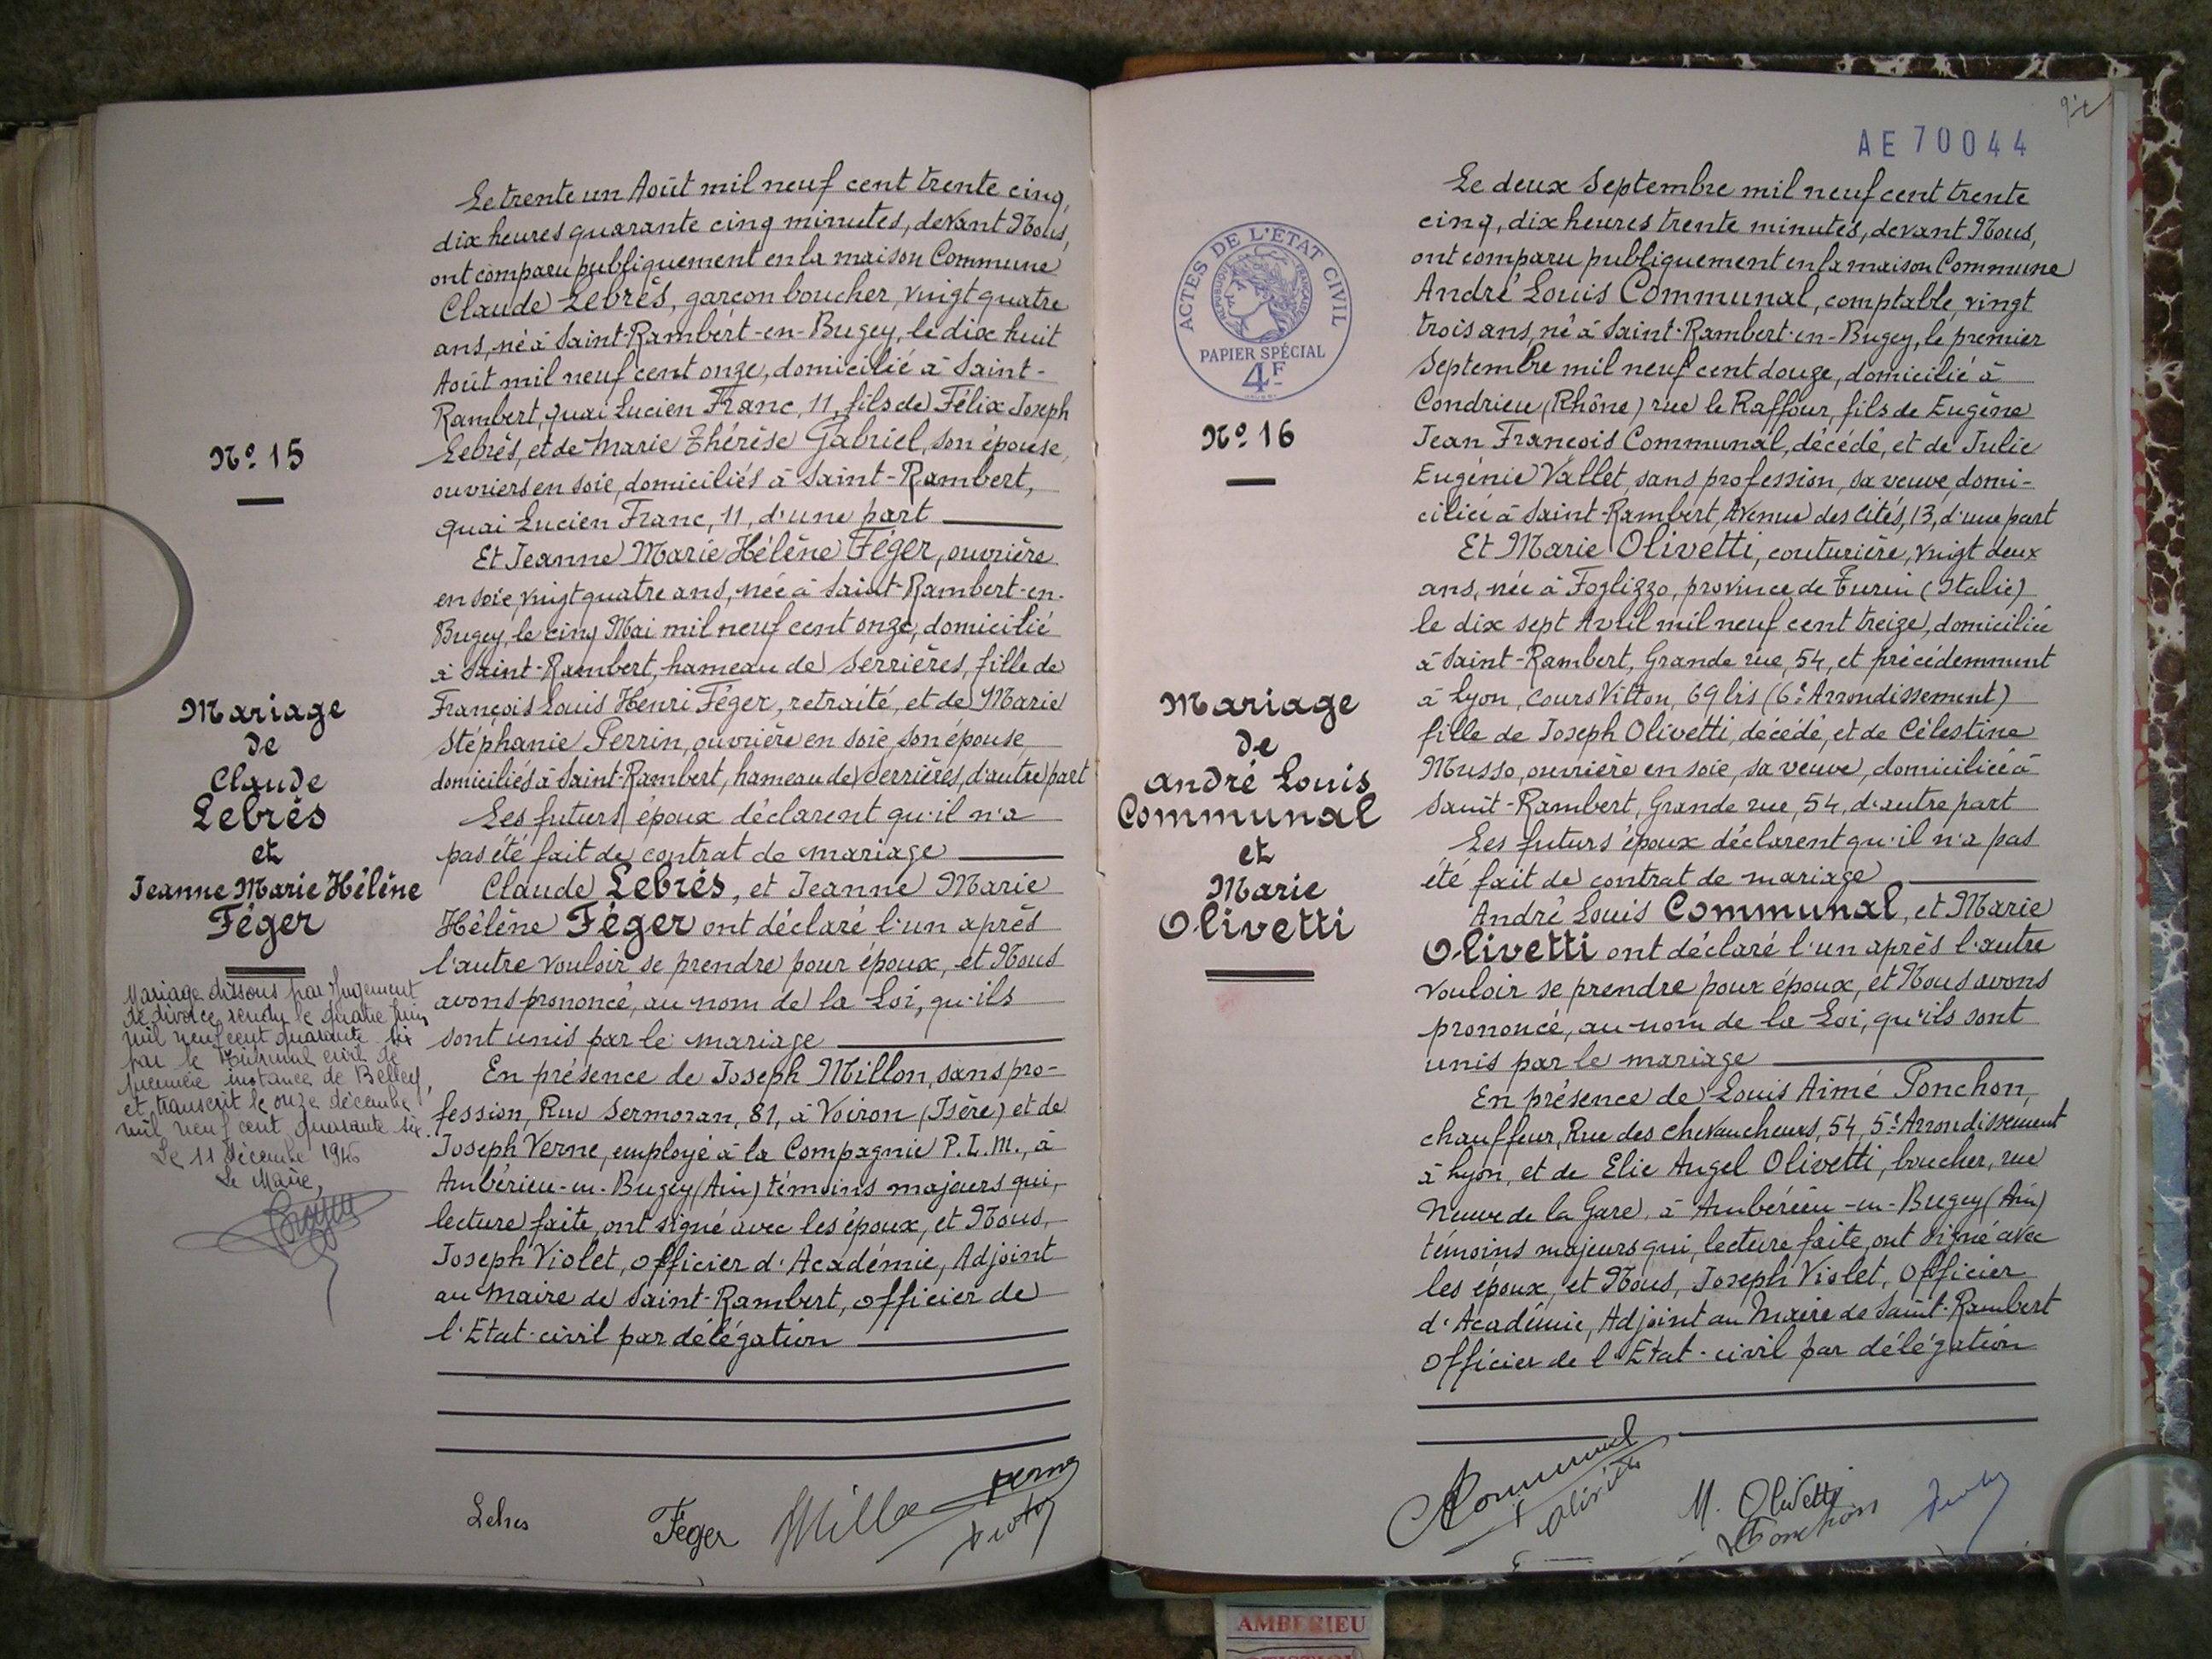 Le trente un Août mil neuf cent trente cinq,
dix heures quarante cinq minutes, devant Nous,
ont comparu publiquement en la maison Commune
Claude Lebrés, garçon boucher, vingt quatre
ans, né à Saint-Rambert-en-Bugey, le dix huit
Août mil neuf cent onze, domicilié à Saint-
Rambert, quai Lucien Franc, 11, fils de Félix Joseph
Lebrés, et de Marie Thérèse Gabriel, son épouse,
ouvriers en soie, domiciliés à Saint-Rambert,
quai Lucien Franc, 11, d'une part
Et Jeanne Marie Hélène Féger, ouvrière
en soie, vingt quatre ans, née à Saint-Rambert-en-
Bugey, le cinq Mai mil neuf cent onze, domicilié
à Saint-Rambert, hameau de Serrières, fille de
François Louis Henri Féger, retraité, et de Marie
Stéphanie Perrin, ouvrière en soie, son épouse,
domiciliés à Saint-Rambert, hameau de Serrières, d'autre part
Les futurs époux déclarent qu'il n'a
pas été fait de contrat de mariage
Claude Lebrés, et Jeanne Marie
Hélène Féger ont déclaré l'un après
l'autre vouloir se prendre pour époux, et Nous
avons prononcé, au nom de la Loi, qu'ils
sont unis par le mariage
En présence de Joseph Millon, sans pro-
fession, Rue Sermoran, 81, à Voiron (Isère) et de
Joseph Verne, employé à la Compagnie P.L.M., à
Ambérieu-en-Bugey (Ain) témoins majeurs qui,
lecture faite, ont signé avec les époux, et Nous,
Joseph Violet, officier d'Académie, Adjoint
au Maire de Saint-Rambert, officier de
l'Etat-civil par délégation
Lebres Féger Millon Verne
Violet
Nº 15
Mariage
de
Claude
Lebrés
et
Jeanne Marie Hélène
Féger
Mariage dissous par Jugement
de divorce rendu le quatre Juin
mil neuf cent quarante six
par le Tribunal civil de
première instance de Belley,
et transcrit le onze décembre
mil neuf cent quarante six.
Le 11 Décembre 1946
Le Maire,
AE 70044
ACTES DE L'ETAT CIVIL
REPUBLIQUE FRANÇAISE
PAPIER SPÉCIAL
4F
Nº 16
Mariage
de
André Louis
Communal
et
Marie
Olivetti
Le deux Septembre mil neuf cent trente
cinq, dix heures trente minutes, devant Nous,
ont comparu publiquement en la maison Commune
André Louis Communal, comptable, vingt
trois ans, né à Saint-Rambert-en-Bugey, le premier
Septembre mil neuf cent douze, domicilié à
Condrieu (Rhône) rue le Raffour, fils de Eugène
Jean François Communal, décédé, et de Julie
Eugénie Vallet, sans profession, sa veuve, domi-
ciliée à Saint-Rambert, Avenue des Cités, 13, d'une part
Et Marie Olivetti, couturière, vingt deux
ans, née à Foglizzo, province de Turin (Italie)
le dix sept Avril mil neuf cent treize, domiciliée
à Saint-Rambert, Grande rue, 54, et précédemment
à Lyon, Cours Vitton, 69 bis (6e Arrondissement)
fille de Joseph Olivetti, décédé, et de Célestine
Musso, ouvrière en soie, sa veuve, domiciliée à
Saint-Rambert, Grande rue, 54, d'autre part
Les futurs époux déclarent qu'il n'a pas
été fait de contrat de mariage
André Louis Communal, et Marie
Olivetti ont déclaré l'un après l'autre
vouloir se prendre pour époux, et Nous avons
prononcé, au nom de la Loi, qu'ils sont
unis par le mariage
En présence de Louis Aimé Ponchon,
chauffeur, Rue des Chevaucheurs, 54, 5e Arrondissement
à Lyon, et de Elie Angel Olivetti, boucher, rue
Neuve de la Gare, à Ambérieu-en-Bugey (Ain)
témoins majeurs qui, lecture faite, ont signé avec
les époux, et Nous, Joseph Violet, Officier
d'Académie, Adjoint au Maire de Saint-Rambert
Officier de l'Etat-civil par délégation
Communal
Olivetti
M. Olivetti
Ponchon
Violet
AMBERIEU